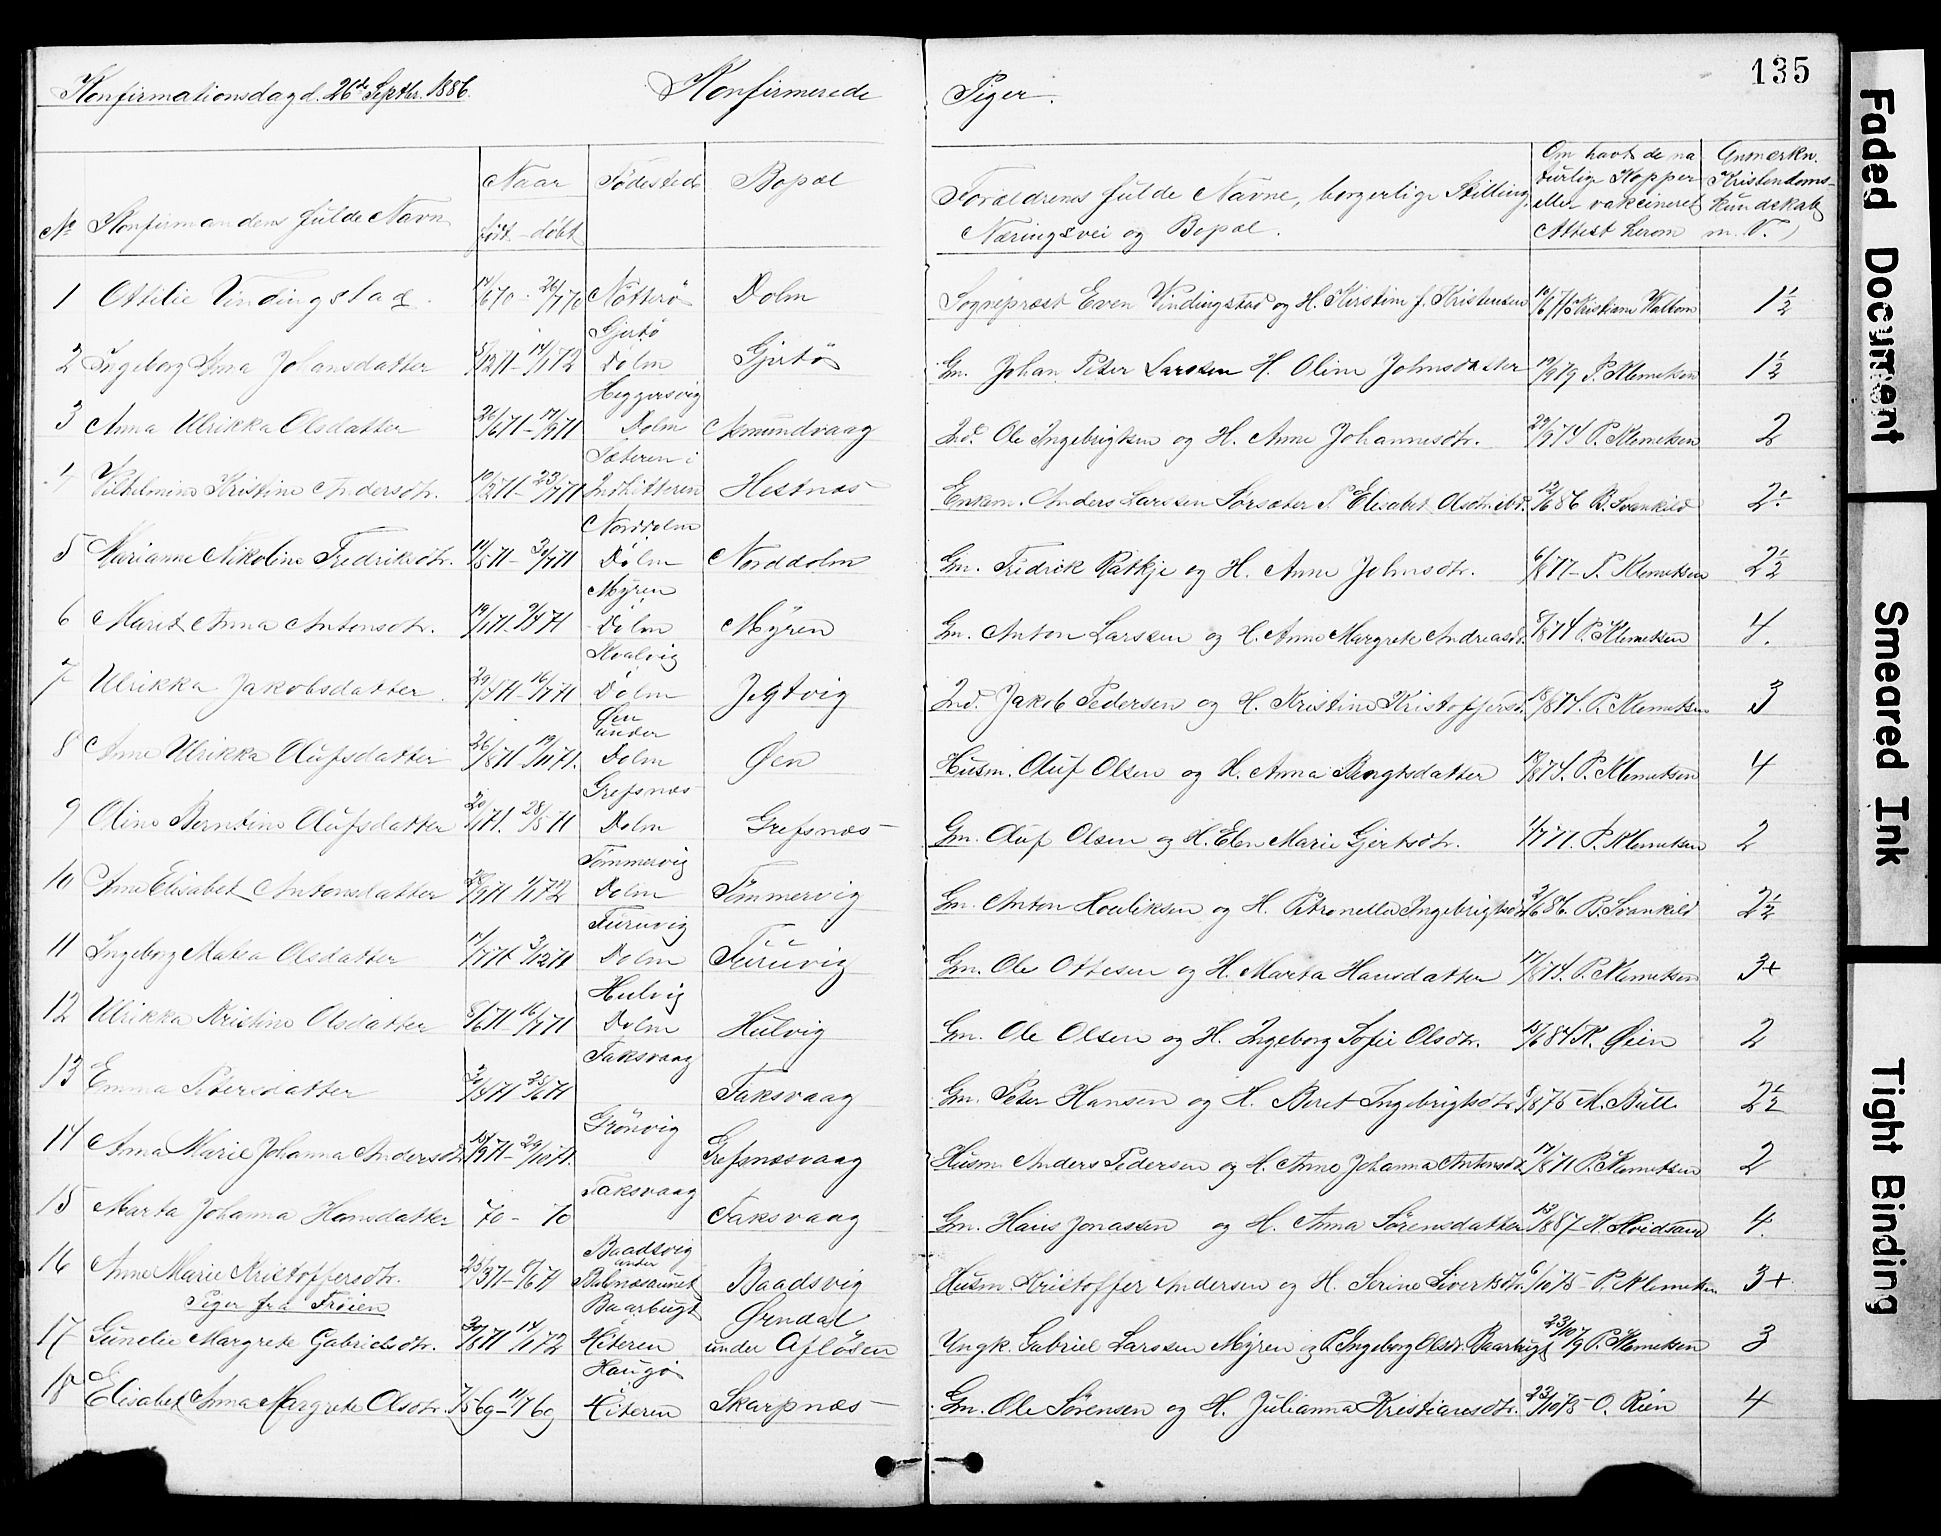 Konfirmationsdag d. 26de Septbr. 1886. Konfirmerede Piger.
135
No Konfirmandens fulde Navn
Naar født – døbt
Fødested
Bopæl
Forældrenes fulde Navne, borgerlige Stilling, Næringsvei og Bopæl.
Om havt de naturlige Kopper eller vakcineret Attest herom
Anmærkn. Kristendomskundskab m. V.
1 Ottilie Vindingstad. 26/7 70 Nøtterø Dolm Sognepræst Even Vindingstad og H. Kirstine f. Kristensen 1½
2 Ingeborg Anna Johansdatter 5/12 71 – 14/1 72 Gjertø Dolm Gjertø Gm. Johan Peter Larssen H. Oline Johnsdatter 12/9 79 P. Klemetsen 1½
3 Anna Ulrikka Olsdatter 26/6 71 – 17/9 71 Heggersvig Dolm Amundvaag Ind. Ole Ingebrigtsen og H. Anne Johannesdtr. 29/9 74 P. Klemetsen 2
4 Vilhelmine Kristine Andersdtr. 10/2 71 – 23/7 71 Sæteren i Indhitteren Hestnæs Enkem. Anders Larssen Sørsæter 12/6 86 B. Svankild 2÷
5 Marianne Nikoline Fredriksdtr. 11/5 71 – 30/7 71 Norddolm Dolm Norddolm Gm. Fredrik Ratkje og H. Anne Johnsdtr. P. Klemetsen 2½
6 Marit Anna Antonsdtr. 19/1 71 – 9/4 71 Myren Dolm Myren Gm. Anton Larssen og H. Anne Margrete Andreasd. 5/8 74 P. Klemetsen 4.
7 Ulrikka Jakobsdatter. 29/5 71 – 16/7 71 Kvalvig Dolm Jegtvig Ind. Jakob Pedersen og H. Kristine Kristoffersd. 18/8 74. P. Klemetsen 3
8 Ane Ulrikka Olufsdatter 26/8 71 – 19/11 71. Øen under Dolm Øen Husm. Oluf Olsen og H. Anna Bengtsdatter 18/8 74. P. Klemetsen 4
9 Oline Berntine Olufsdatter 20/1 71. 28/5 71 Grefsnæs Dolm Grefsnæs Gm. Oluf Olsen og H. Elen Marie Gjertsdtr. P. Klemetsen 2
10 Ane Elisabet Antonsdatter 28/9 71 1/1 72 Tømmervig Dolm Tømmervig Gm. Anton og H. Petronella Ingebrigtsd. 2/6 86. B. Svankild 2½
11 Ingeborg Matea Olsdatter 3/12 71 Furuvig Dolm Furuvig Gm. Ole Ottesen og H. Marta Hansdatter 17/8 74. P. Klemetsen 3+
12 Ulrikka Kristine Olsdatter 8/6 71 – 16/7 71 Hulvig Dolm Hulvig Gm. Ole Olsen og H. Ingeborg Sofie Olsdtr. 13/6 84 K. Øien 2
13 Emma Petersdatter 2/4 71 25/6 71 Faksvaag Faksvaag Gm. Peter Hansen og H. Beret Ingebrigtsdtr. M. Bull 2½
14 Anna Marie Johanna Andersd. 18/9 71 – 29/10 71. Grønvig Grefsnæsvaag Husm. Anders Pedersen og H. Anne Johanna Antonsd. 17/8 71 P. Klemetsen 2
15 Marta Johanna Hansdatter 70 – 70 Faksvaag Faksvaag Gm. Hans Jonassen og H. Anna Sørensdatter 4.
16 Ane Marie Kristoffersdtr. 25/3 71 – 6 71 Baadsvig under Baadsvig Husm. Kristoffer Andersen og H. Serine Sivertsdtr. 6/10 75 – P. Klemetsen 3+
Piger fra Frøien
17 Gunelie Margrete Gabrielsdtr. 30/8 71 14/1 72 Baarbugt Hiteren Ørndal under Afløsen Ungk. Gabriel Larssen Myren og P. Ingeborg Olsdr. Baarbugt 23/10 79 P. Klemetsen 3
18 Elisabet Anna Margrete Olsdtr. 7/5 69 – 11/7 69 Haugø Hiteren Skarpnæs Gm. Ole Sørensen og H. Julianna Kristiansdtr. 23/10 75 – O. Rien 4
Faded Document
Smeared Ink
Tight Binding